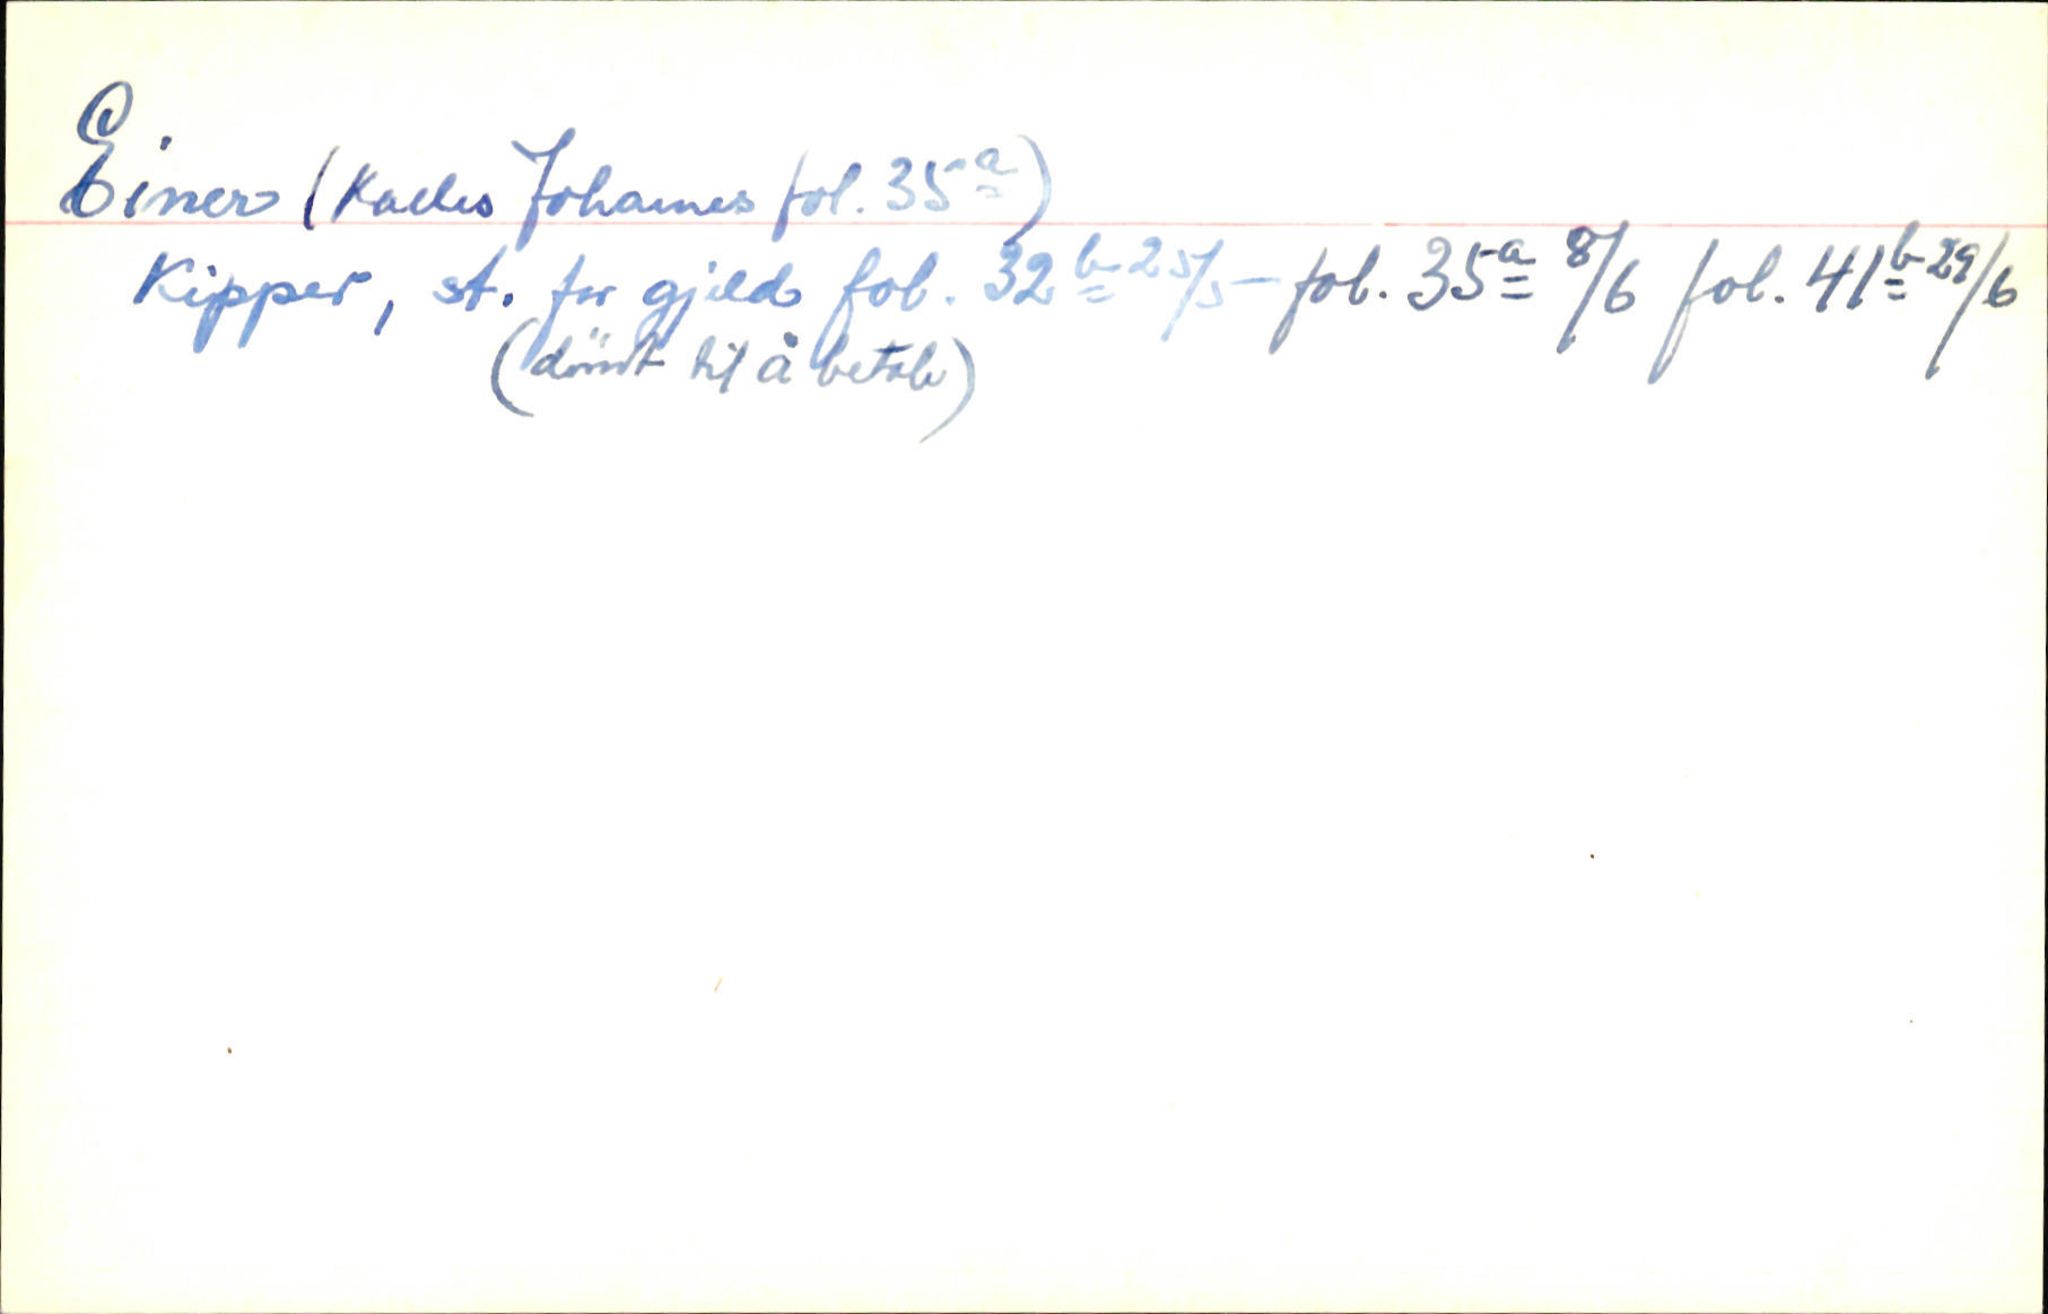 Einer (Kalles Johannes fol. 35 a)
Kipper, st. for gjeld fol. 32 b 25/5 - fol. 35 a 8/6 fol. 41 b 29/6
(dömt til å betale)